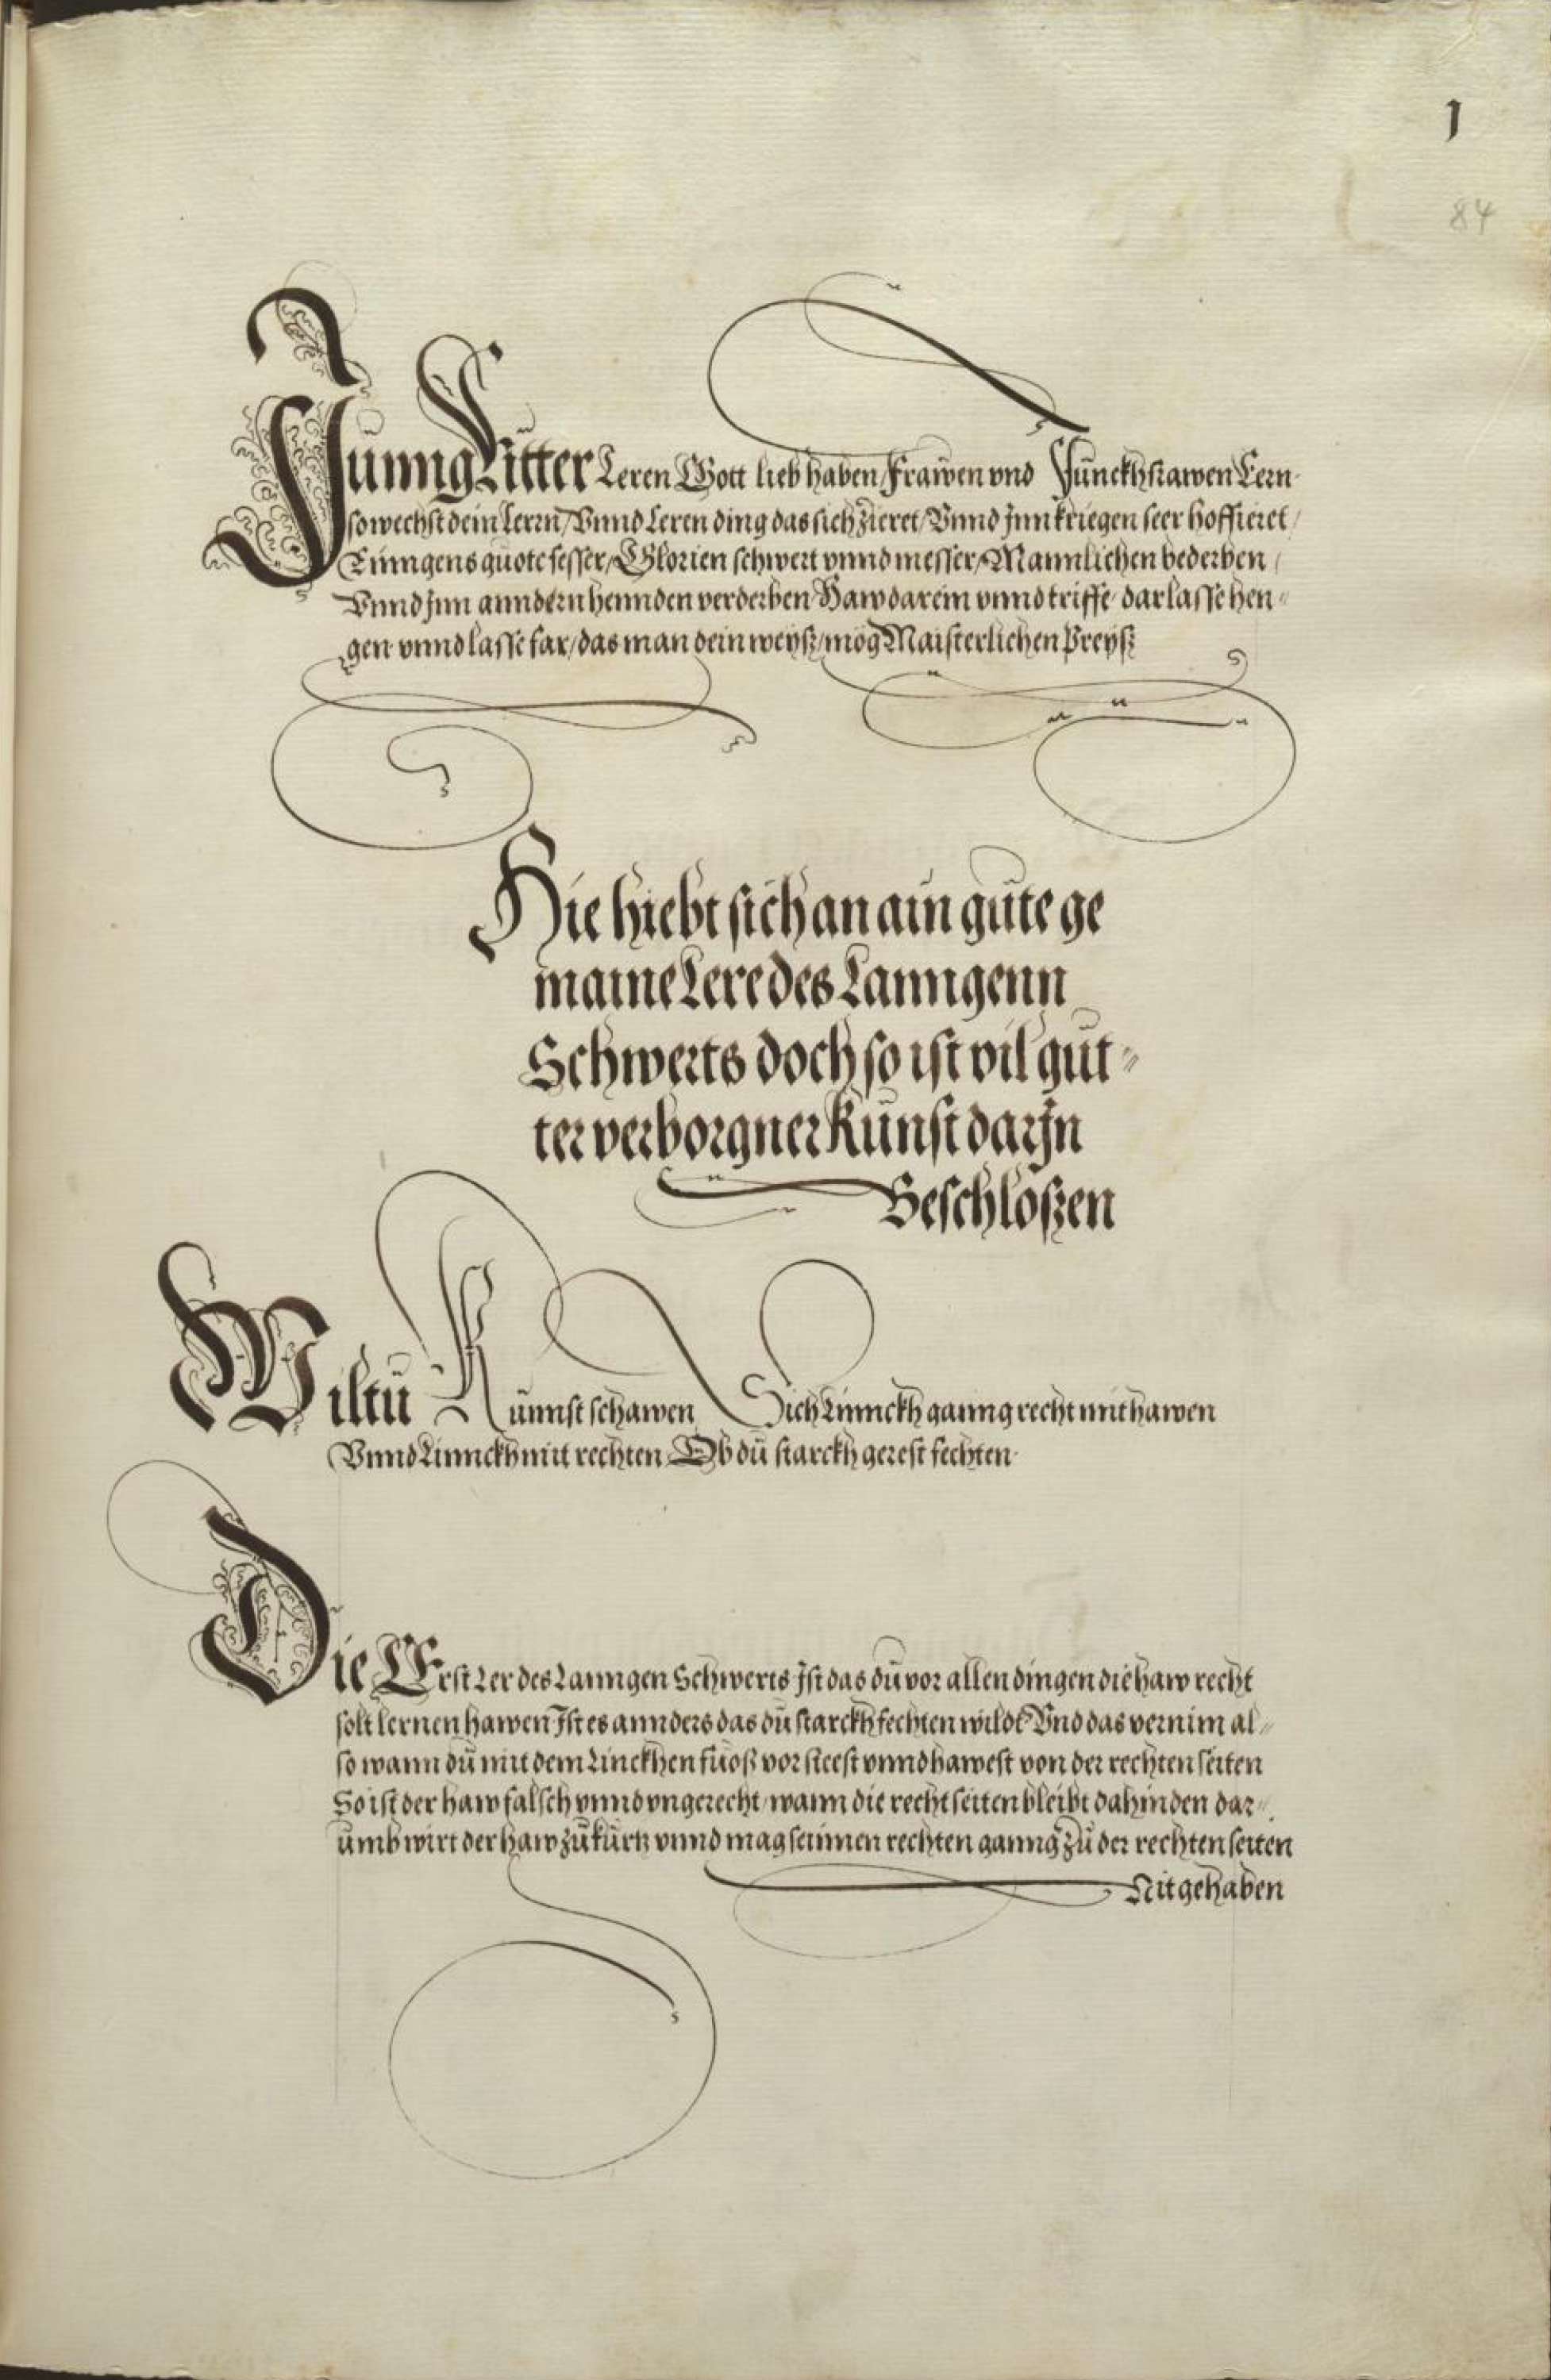 1
84
Junng Ritter Leren Gott lieb haben / Frawen vnd Junckhfrawen Eern
so wechst dein Leren / Vnnd Leren ding das sich zieret / Vnnd Jnn kriegen seer hoffieret /
Rinngens guote fesser / Glorien schwert vnnd messer / Mannlichen bederben /
Vnnd Jnn anndern hennden verderben Haw darein vnnd triffe dar lasse hen=
gen vnnd lasse far / das man dein weyß / mög Maisterlichen Preyß
Hie hiebt sich an ain gůte ge
maine Lere des Lanngenn
Schwerts doch so ist vil gůt=
ter verborgner Kůnst dar Jn
Beschloßen
Wiltů Kůnnst schawen Sich Linnckh ganng recht mit hawen
Vnnd Linnckh mit rechten Ob dů starckh gerest fechten
Die Erst Ler des Lanngen Schwerts Jst das dů vor allen dingen die haw recht
solt lernen hawen Jst es annders das dů starckh fechten wildt Vnd das vernim al=
so wann dů mit dem Linckhen fůoß vor steest vnnd hawest von der rechten seiten
So ist der haw falsch vnnd vngerecht / wann die recht seiten bleibt dahinden dar=
ůmb wirt der haw zů kůrtz vnnd mag seinnen rechten ganng zů der rechten seiten
Nit gehaben